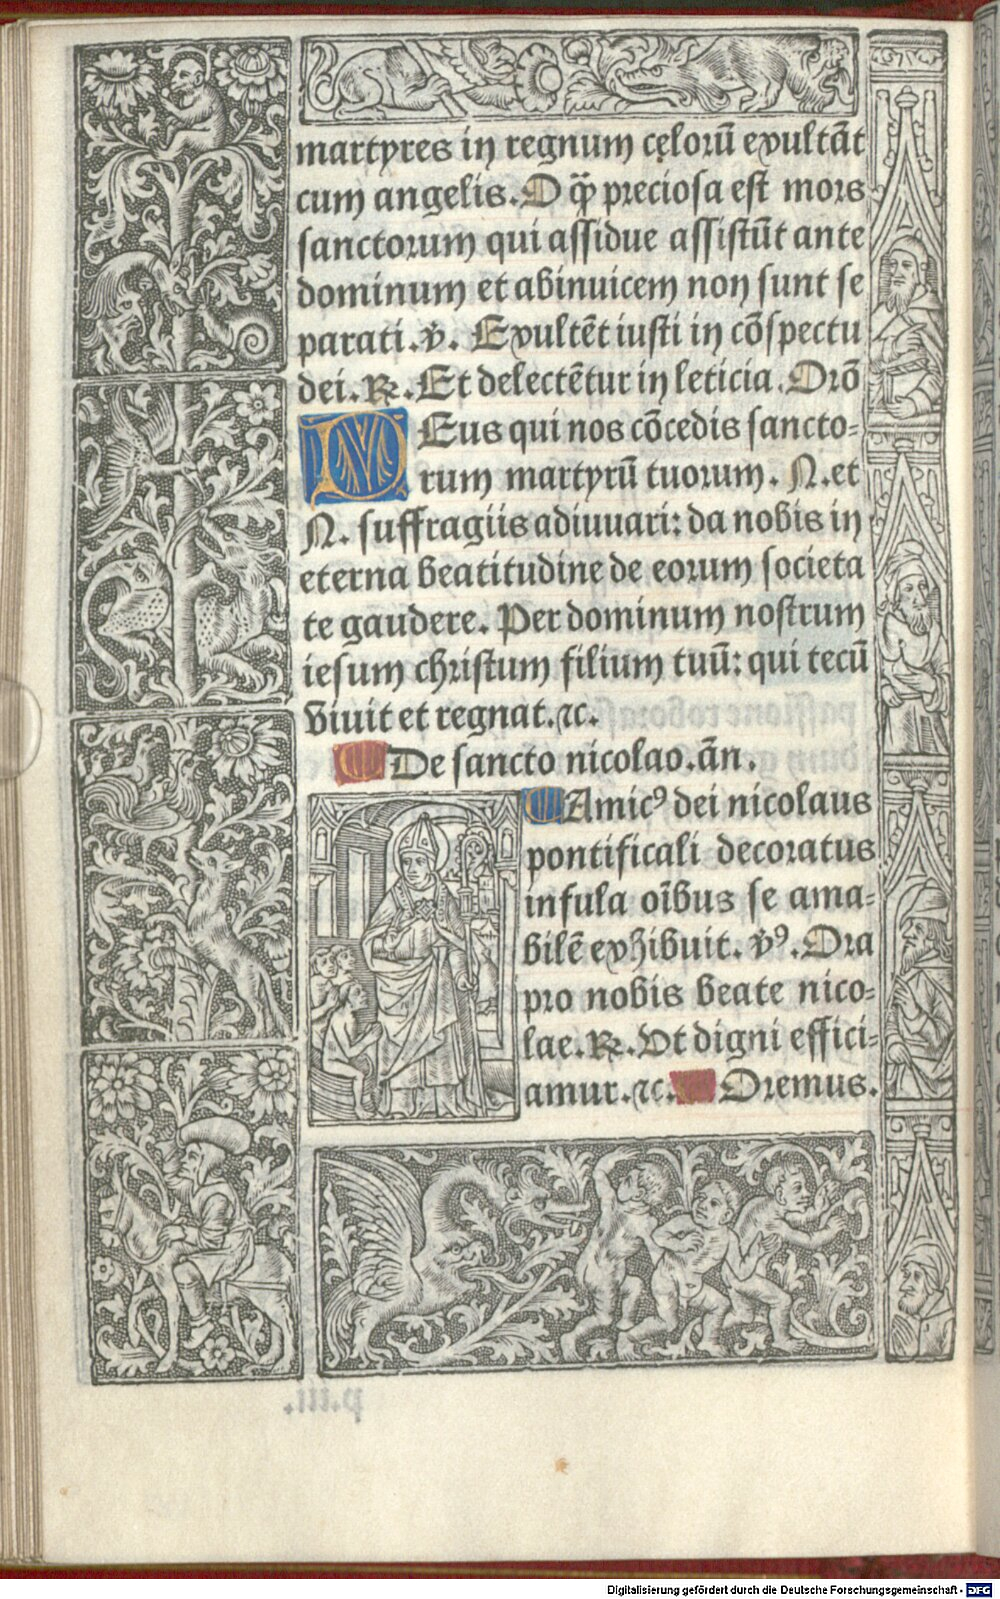 martyres in regnum cęlorū exultāt
cum angelis. O q̄ꝫ preciosa est mors
sanctorum qui assidue assistūt ante
dominum et abinuicem non sunt se
parati. ℣. Exultēt iusti in cōspectu
dei. ℞. Et delectētur in leticia. Orō
DEus qui nos cōcedis sancto-
rum martyrū tuorum. N. et
N. suffragiis adiuuari: da nobis in
eterna beatitudine de eorum societa
te gaudere. Per dominum nostrum
iesum christum filium tuū: qui tecū
viuit et regnat. ⁊c.
De sancto nicolao. ān.
Amicꝰ dei nicolaus
pontificali decoratus
infula oībus se ama-
bilē exhibuit. ℣ꝰ. Ora
pro nobis beate nico-
lae. ℞. Vt digni effici-
amur. ⁊c. Oremus.
p.iii.
Digitalisierung gefördert durch die Deutsche Forschungsgemeinschaft - DFG